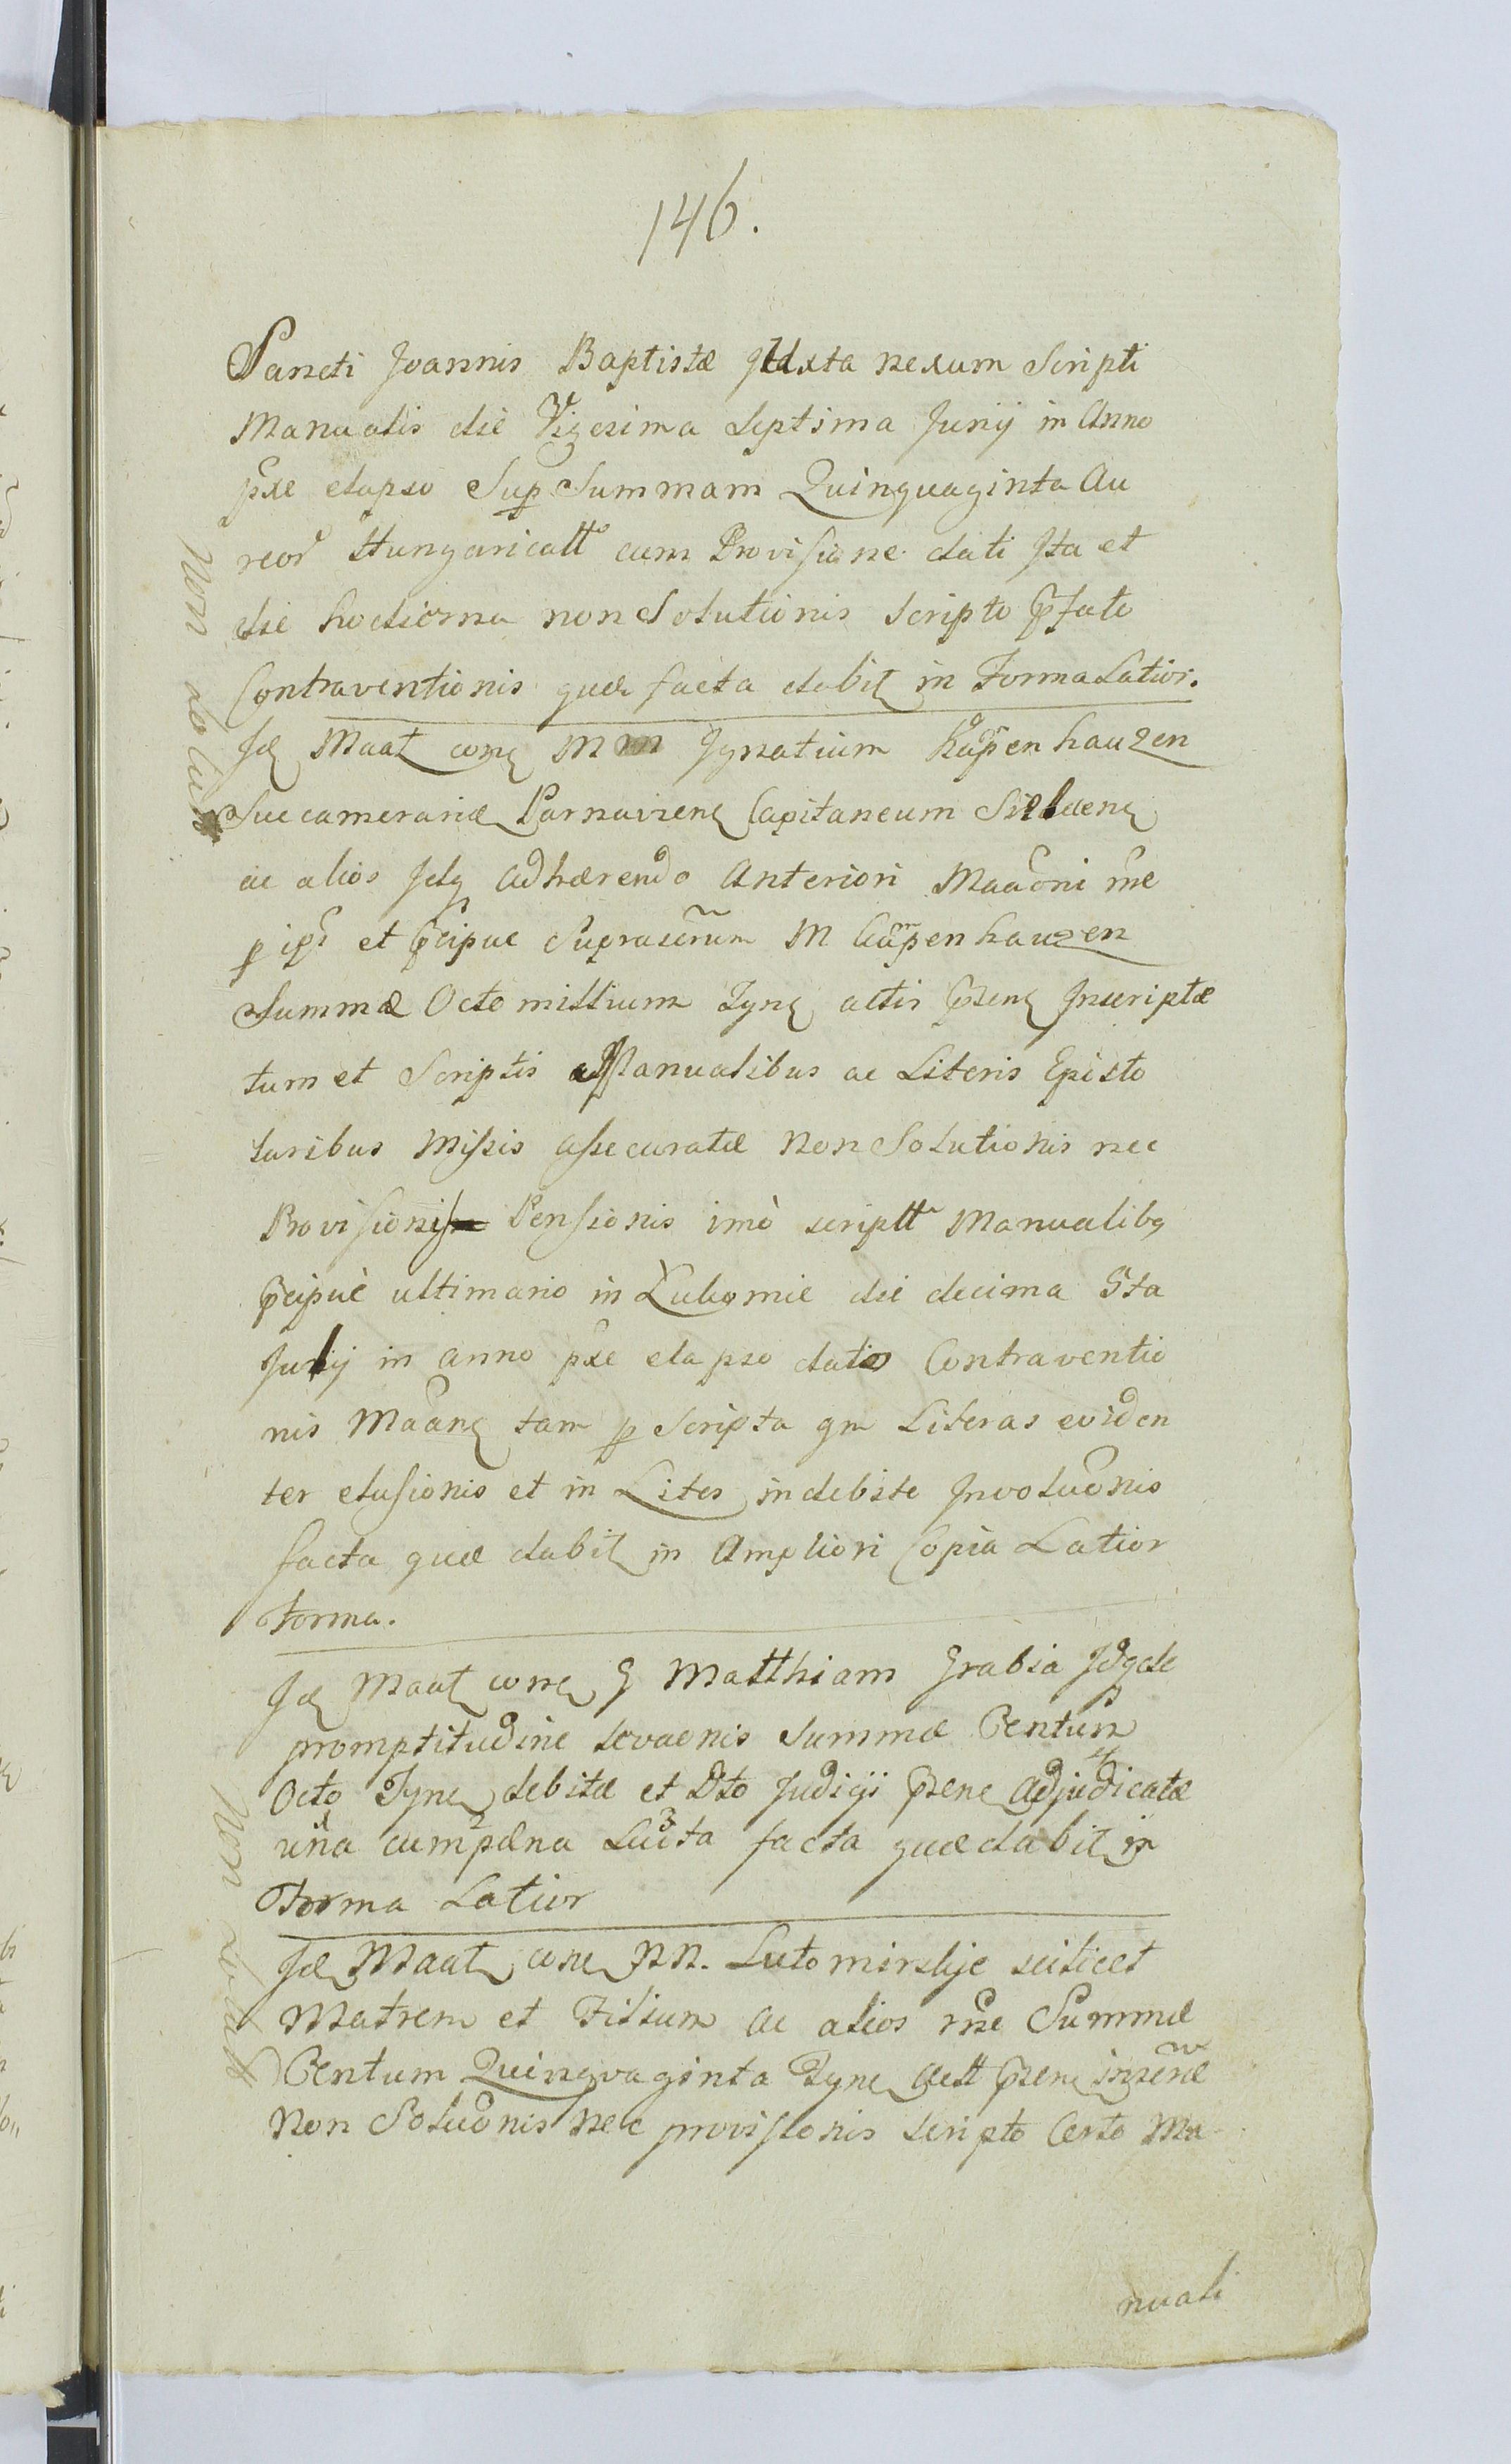 146.
Sancti Joannis Baptistæ Juxta nexum Scripti
Manualis die Vigesima Septima Junij in Anno
pxe elapso Sup Summam Quinquaginta Au
reor Hungaricall cum Provisione dati Ita et
die hodierna non Solutionis Scripto pfato
Contraventionis quæ facta dabit in Forma Latior.
Id Maat cone M Ignatium Kampenhauzen
Succamerariũ Parnavien Capitaneum
ac alios Idq adhærendo Anteriori Maaõni rne
p ips et pcipue Suprascrum M Campenhauzen
Summæ Octo millium Tyn actis psen Inscriptæ
tum et Scriptis Manualibus ac Literis Episto
laribus Missis assecuratæ non Solutionis nec
Provisionis Pensionis imò scriptt Manualibq
pcipuè ultimario in Lubomie die decima 5ta
Julij in anno pxe elapso dato Contraventio
nis Maane tam p Scripta qm Literas eviden
ter elusionis et in Lites indebite Involuõnis
facta quæ dabit in Ampliori Copia Latior
Forma.
Id Maat cone G Matthiam Grabia Idq de
promptitudine levaõnis Summæ Centum
Octo Tyne debitæ et Dto Judicij psene adjudicatæ
una cum pæna Lucta facta quæ dabit in
Forma Latior
Id Maat cone NN. Lutomirskie scilicet
Matrem et Filium ac alios rne Summæ
Centum Quinquaginta Tyne actt psene inscræ
Non Soluõnis nec provisionis scripto Certo Ma
nuali
Non locut
Non locut